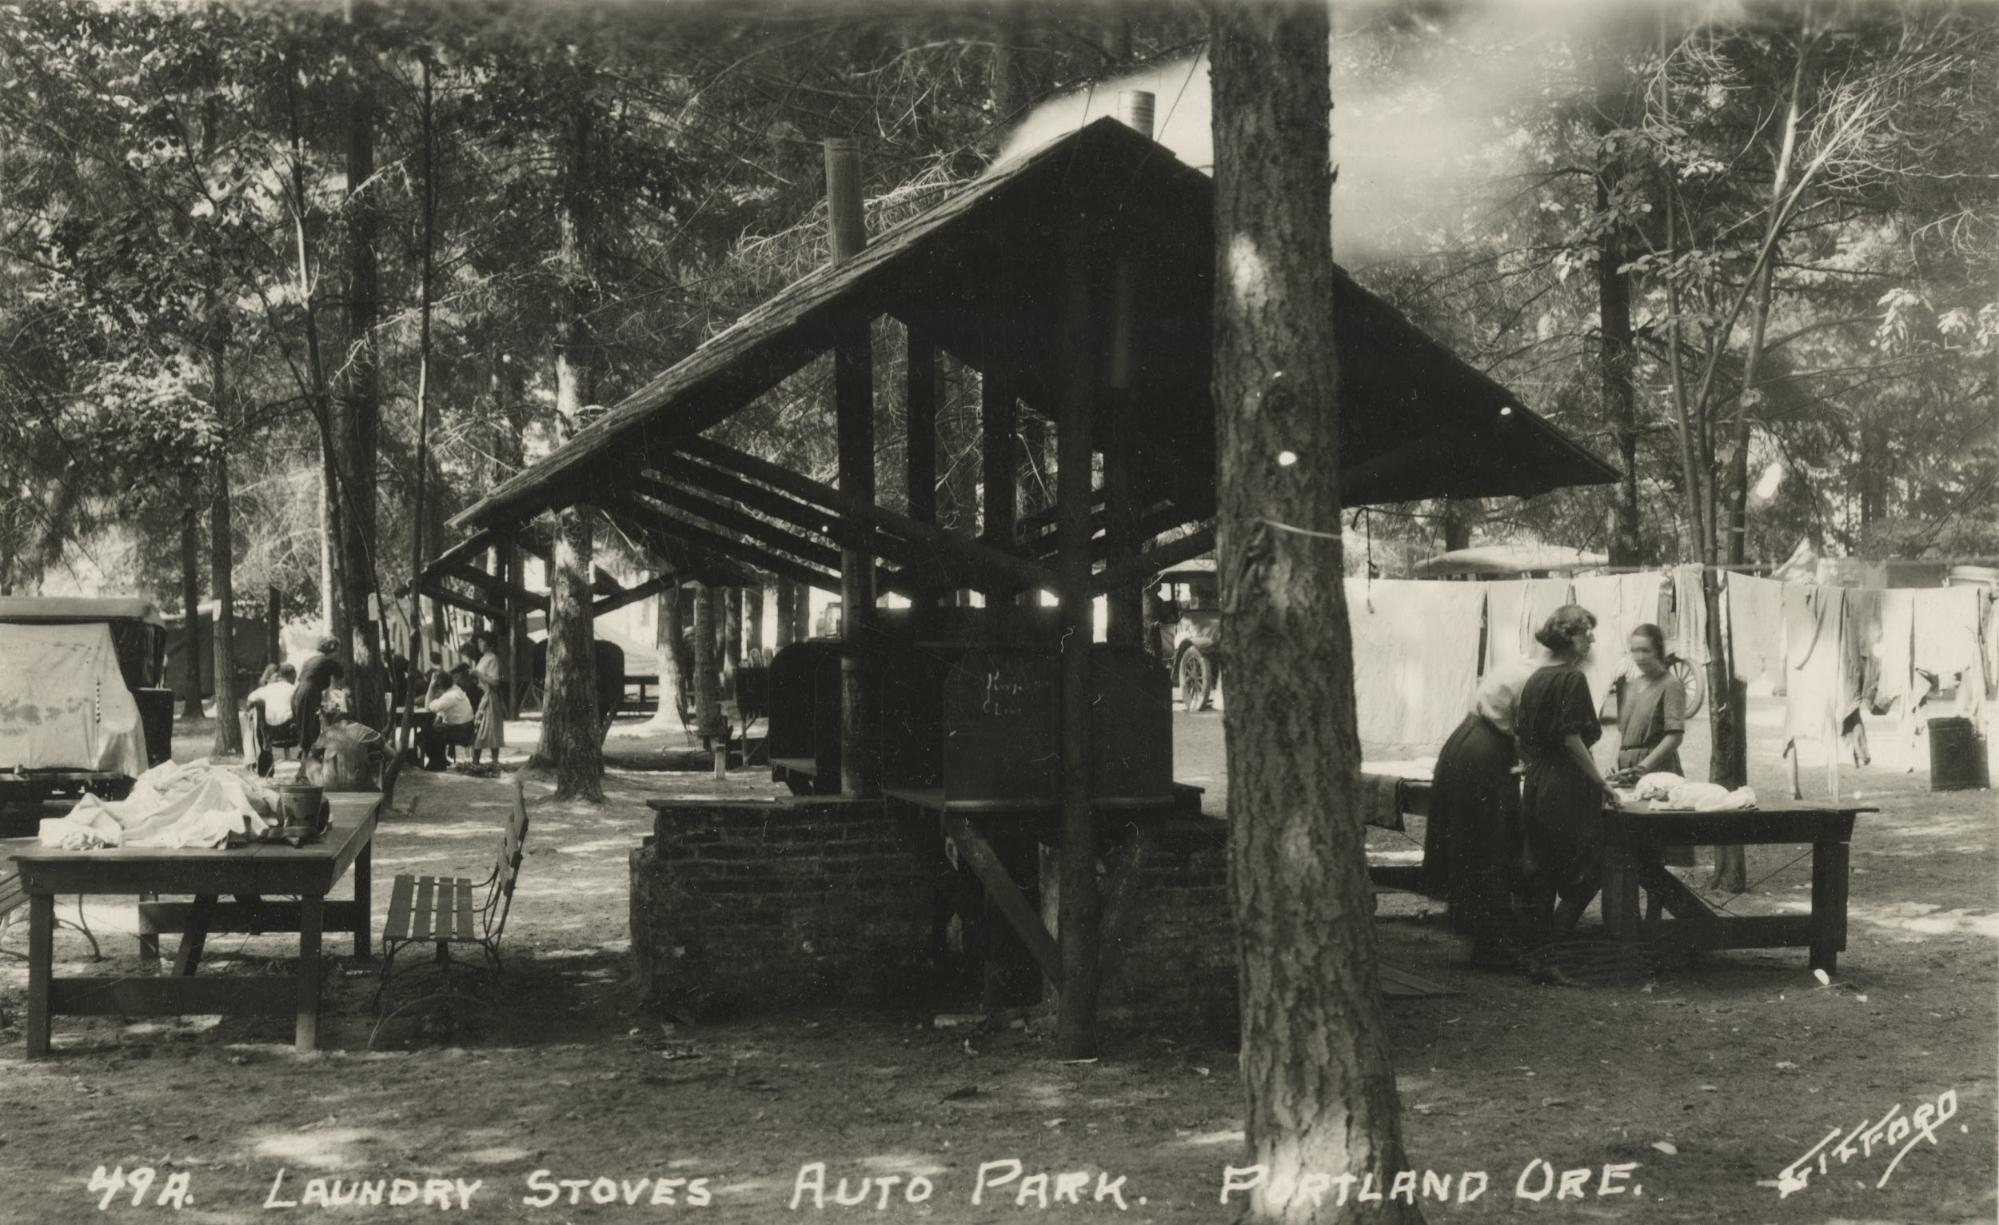 Keep
Clean
49A. LAUNDRY STOVES AUTO PARK. PORTLAND ORE.
GIFFORD.